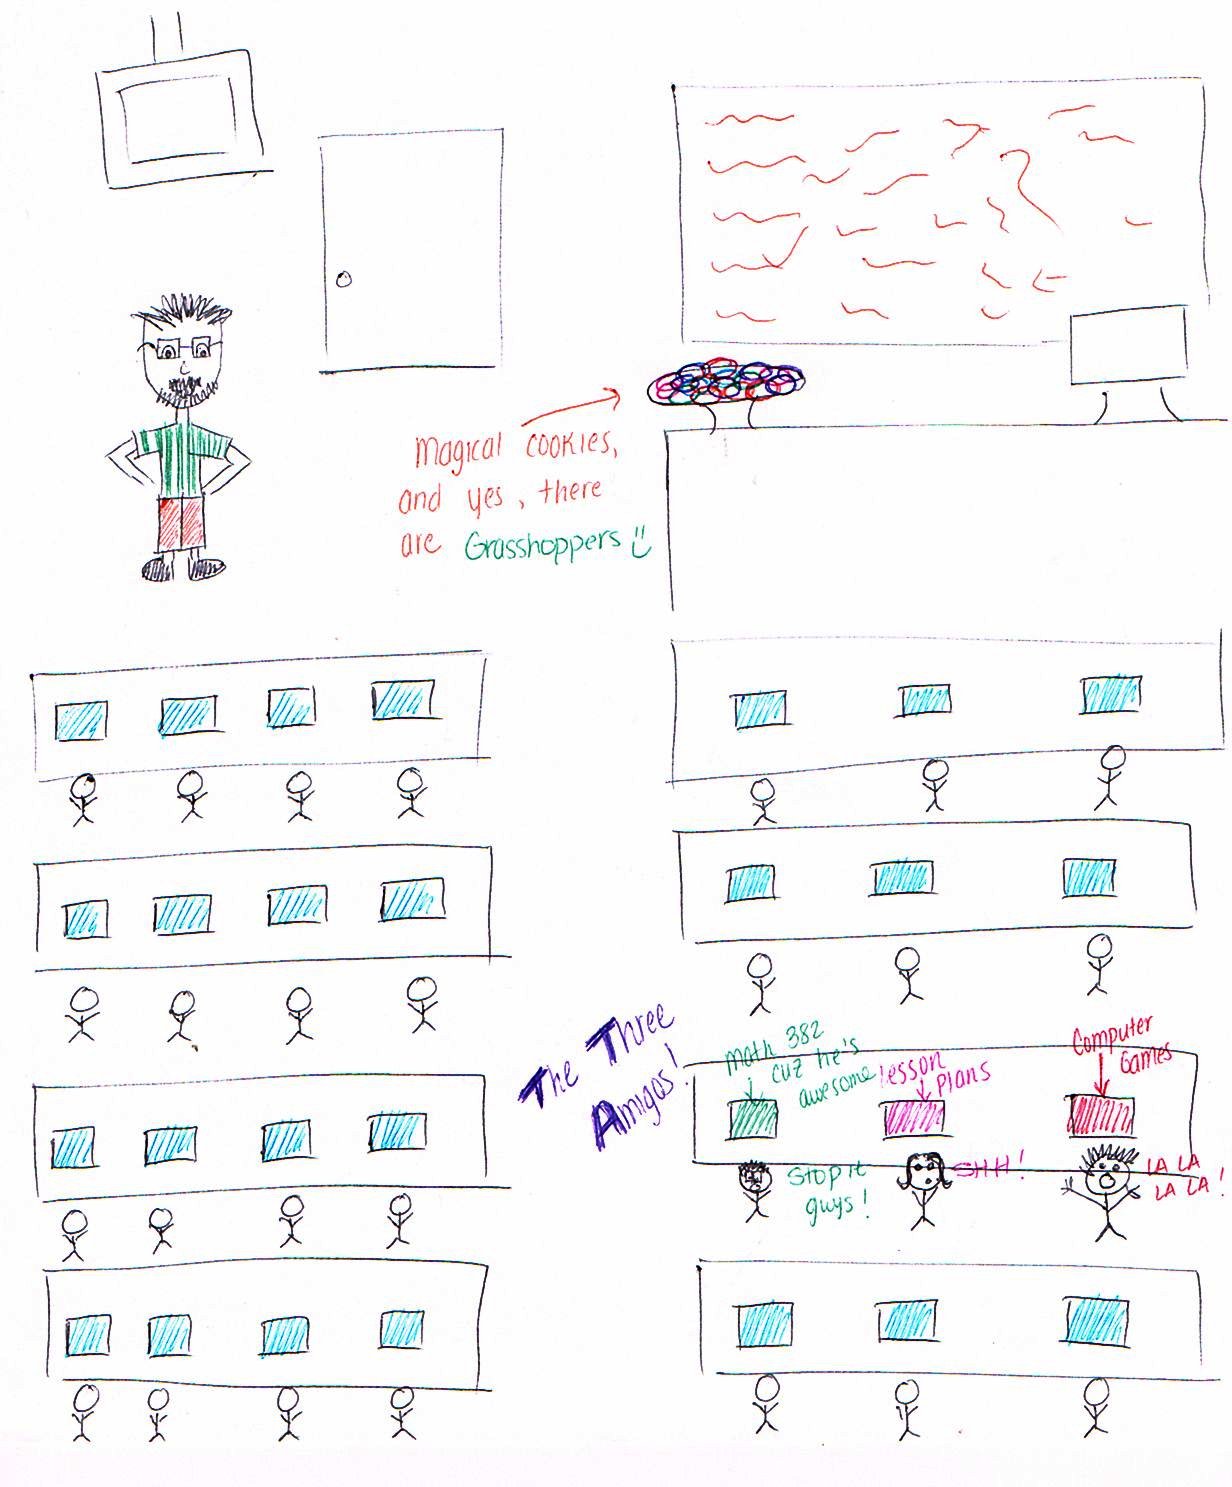 Magical cookies,
and yes, there
are Grasshoppers
The Three
Amigos!
Math 382
cuz he's
awesome
lesson
Plans
Computer
Games
Stop it
guys!
SHH!
LA LA
LA LA!